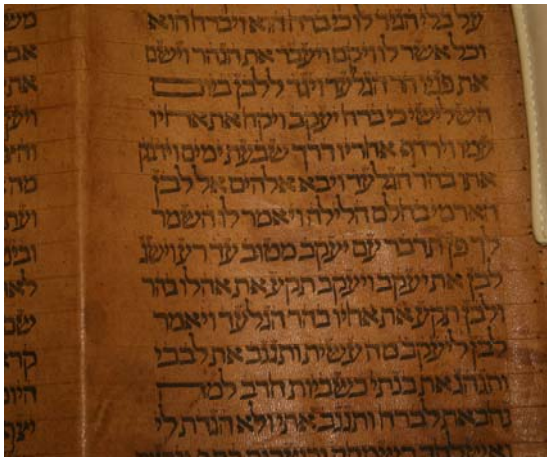 על בלי הגיד לו כי ברח הוא ויברח הוא
וכל אשר לו ויקם ויעבר את הנהר וישם
את פניו הר הגלעד ויגד ללבן ביום
השלישי כי ברח יעקב ויקח את אחיו
עמו וירדף אחריו דרך שבעת ימים וידבק
אתו בהר הגלעד ויבא אלהים אל לבן
הארמי בחלם הלילה ויאמר לו השמר
לך פן תדבר עם יעקב מטוב עד רע וישג
לבן את יעקב ויעקב תקע את אהלו בהר
ולבן תקע את אחיו בהר הגלעד ויאמר
לבן ליעקב מה עשית ותגנב את לבבי
ותנהג את בנתי כשביות חרב למה
נחבאת לברח ותגנב אתי ולא הגדת לי